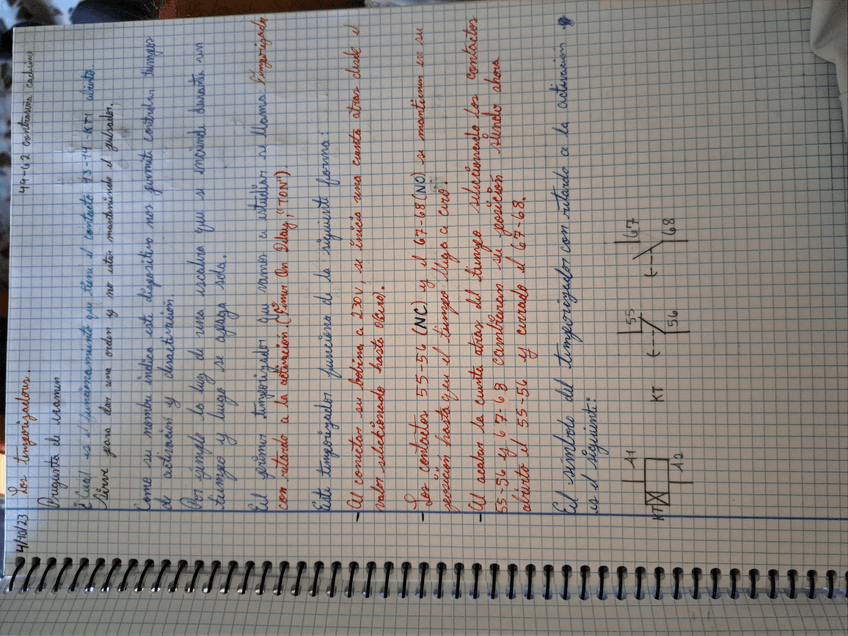 4/10/23 Los temporizadores. 44-62 contraseña
Pregunta de examen
¿Cual es el funcionamiento que tiene el contacto 13-14 -KT1 abierto
Sirve para dar una orden y no estar manteniendo el pulsador.
Como su nombre indica este dispositivo nos permite controlar tiempos
de activación y desactivación.
Por ejemplo la luz de una escalera que se enciende durante un
tiempo y luego se apaga sola.
El primer temporizador que vamos a estudiar se llama temporizador
con retardo a la activación. (Timer On Delay, "TON")
Este temporizador funciona de la siguiente forma:
- Al conectar su bobina a 230V, se inicia una cuenta atras desde el
valor seleccionado hasta 0(cero).
- Los contactos 55-56 (NC) y el 67-68 (NO) se mantienen en su
posición hasta que el tiempo llega a cero.
- Al acabar la cuenta atras del tiempo seleccionado los contactos
55-56 y 67-68 cambiaran su posición siendo ahora
abierto el 55-56 y cerrado el 67-68.
El símbolo del temporizador con retardo a la activación
es el siguiente:
KT A1 A2 KT 55 56 67 68